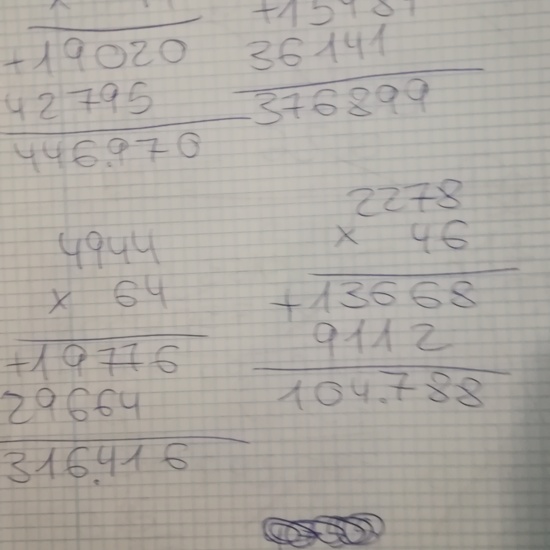 +19020
42795
446.970
36141
376899
4944
x 64
+19776
29664
316.416
2278
x 46
+13668
9112
104.788